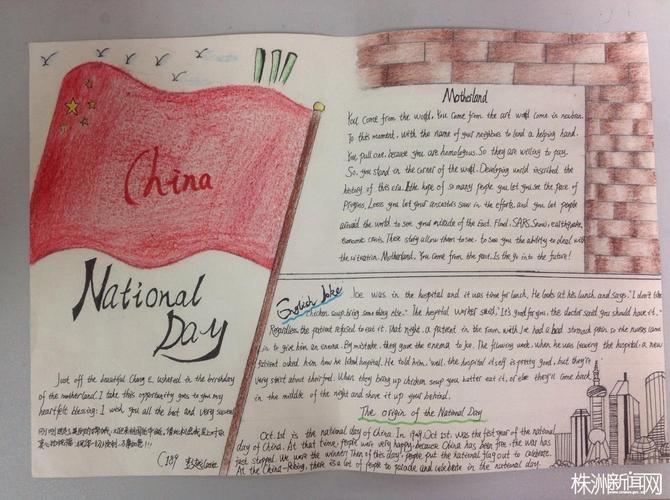 China
National
Day
Just off the beautiful Chang E, ushered in the birthday
of the motherland, I take this opportunity goes to you my
heartfelt blessing: I wish you all the best and very
C189
Motherland
You come from the world, You come from the art world come in
To this moment, with the name of your neighbors to lend a helping hand.
You pull one, because you are homologous. So they are willing to pay.
So, you stand in the corner of the world. Developing world inscribed the
history of this era. the hope of so many people you let you see the pace of
progress, Loess you let your ancestors saw in the efforts, and you let people
around the world to see your miracle of the East. Flood, SARS, Snow, earthquake,
economic crisis. These story allow them to see, to see you the ability to deal with
the situation. Motherland. You come from the past. Is the go into the future!
English Joke
Joe was in the hospital and it was time for lunch. He looks at his lunch and says, "I don't like
chicken soup, bring something else." The hospital worker said, "It's good for you, the doctor said you should have it."
Regardless, the patient refused to eat it. That night, a patient in the room with Joe had a bad stomach pain so the nurses came
in to give him an enema. By mistake, they gave the enema to Joe. The following week, when he was leaving the hospital, a new
patient asked him how he liked hospital. He told him, "well, the hospital itself is pretty good, but they're
very strict about their food. When they bring up chicken soup you better eat it, or else they'll come back
in the middle of the night and shove it up your behind.
The origin of the National Day
Oct. 1st is the national day of China. In 1949, Oct 1st. was the first year of the national
day of China. At that time, people were very happy, because China has been free, the war has
just stopped. We were the winner! Then of this day, people put the national flag out to celebrate.
At the China-Peking, there is a lot of people to parade and celebrate in the national day.
株洲新闻网